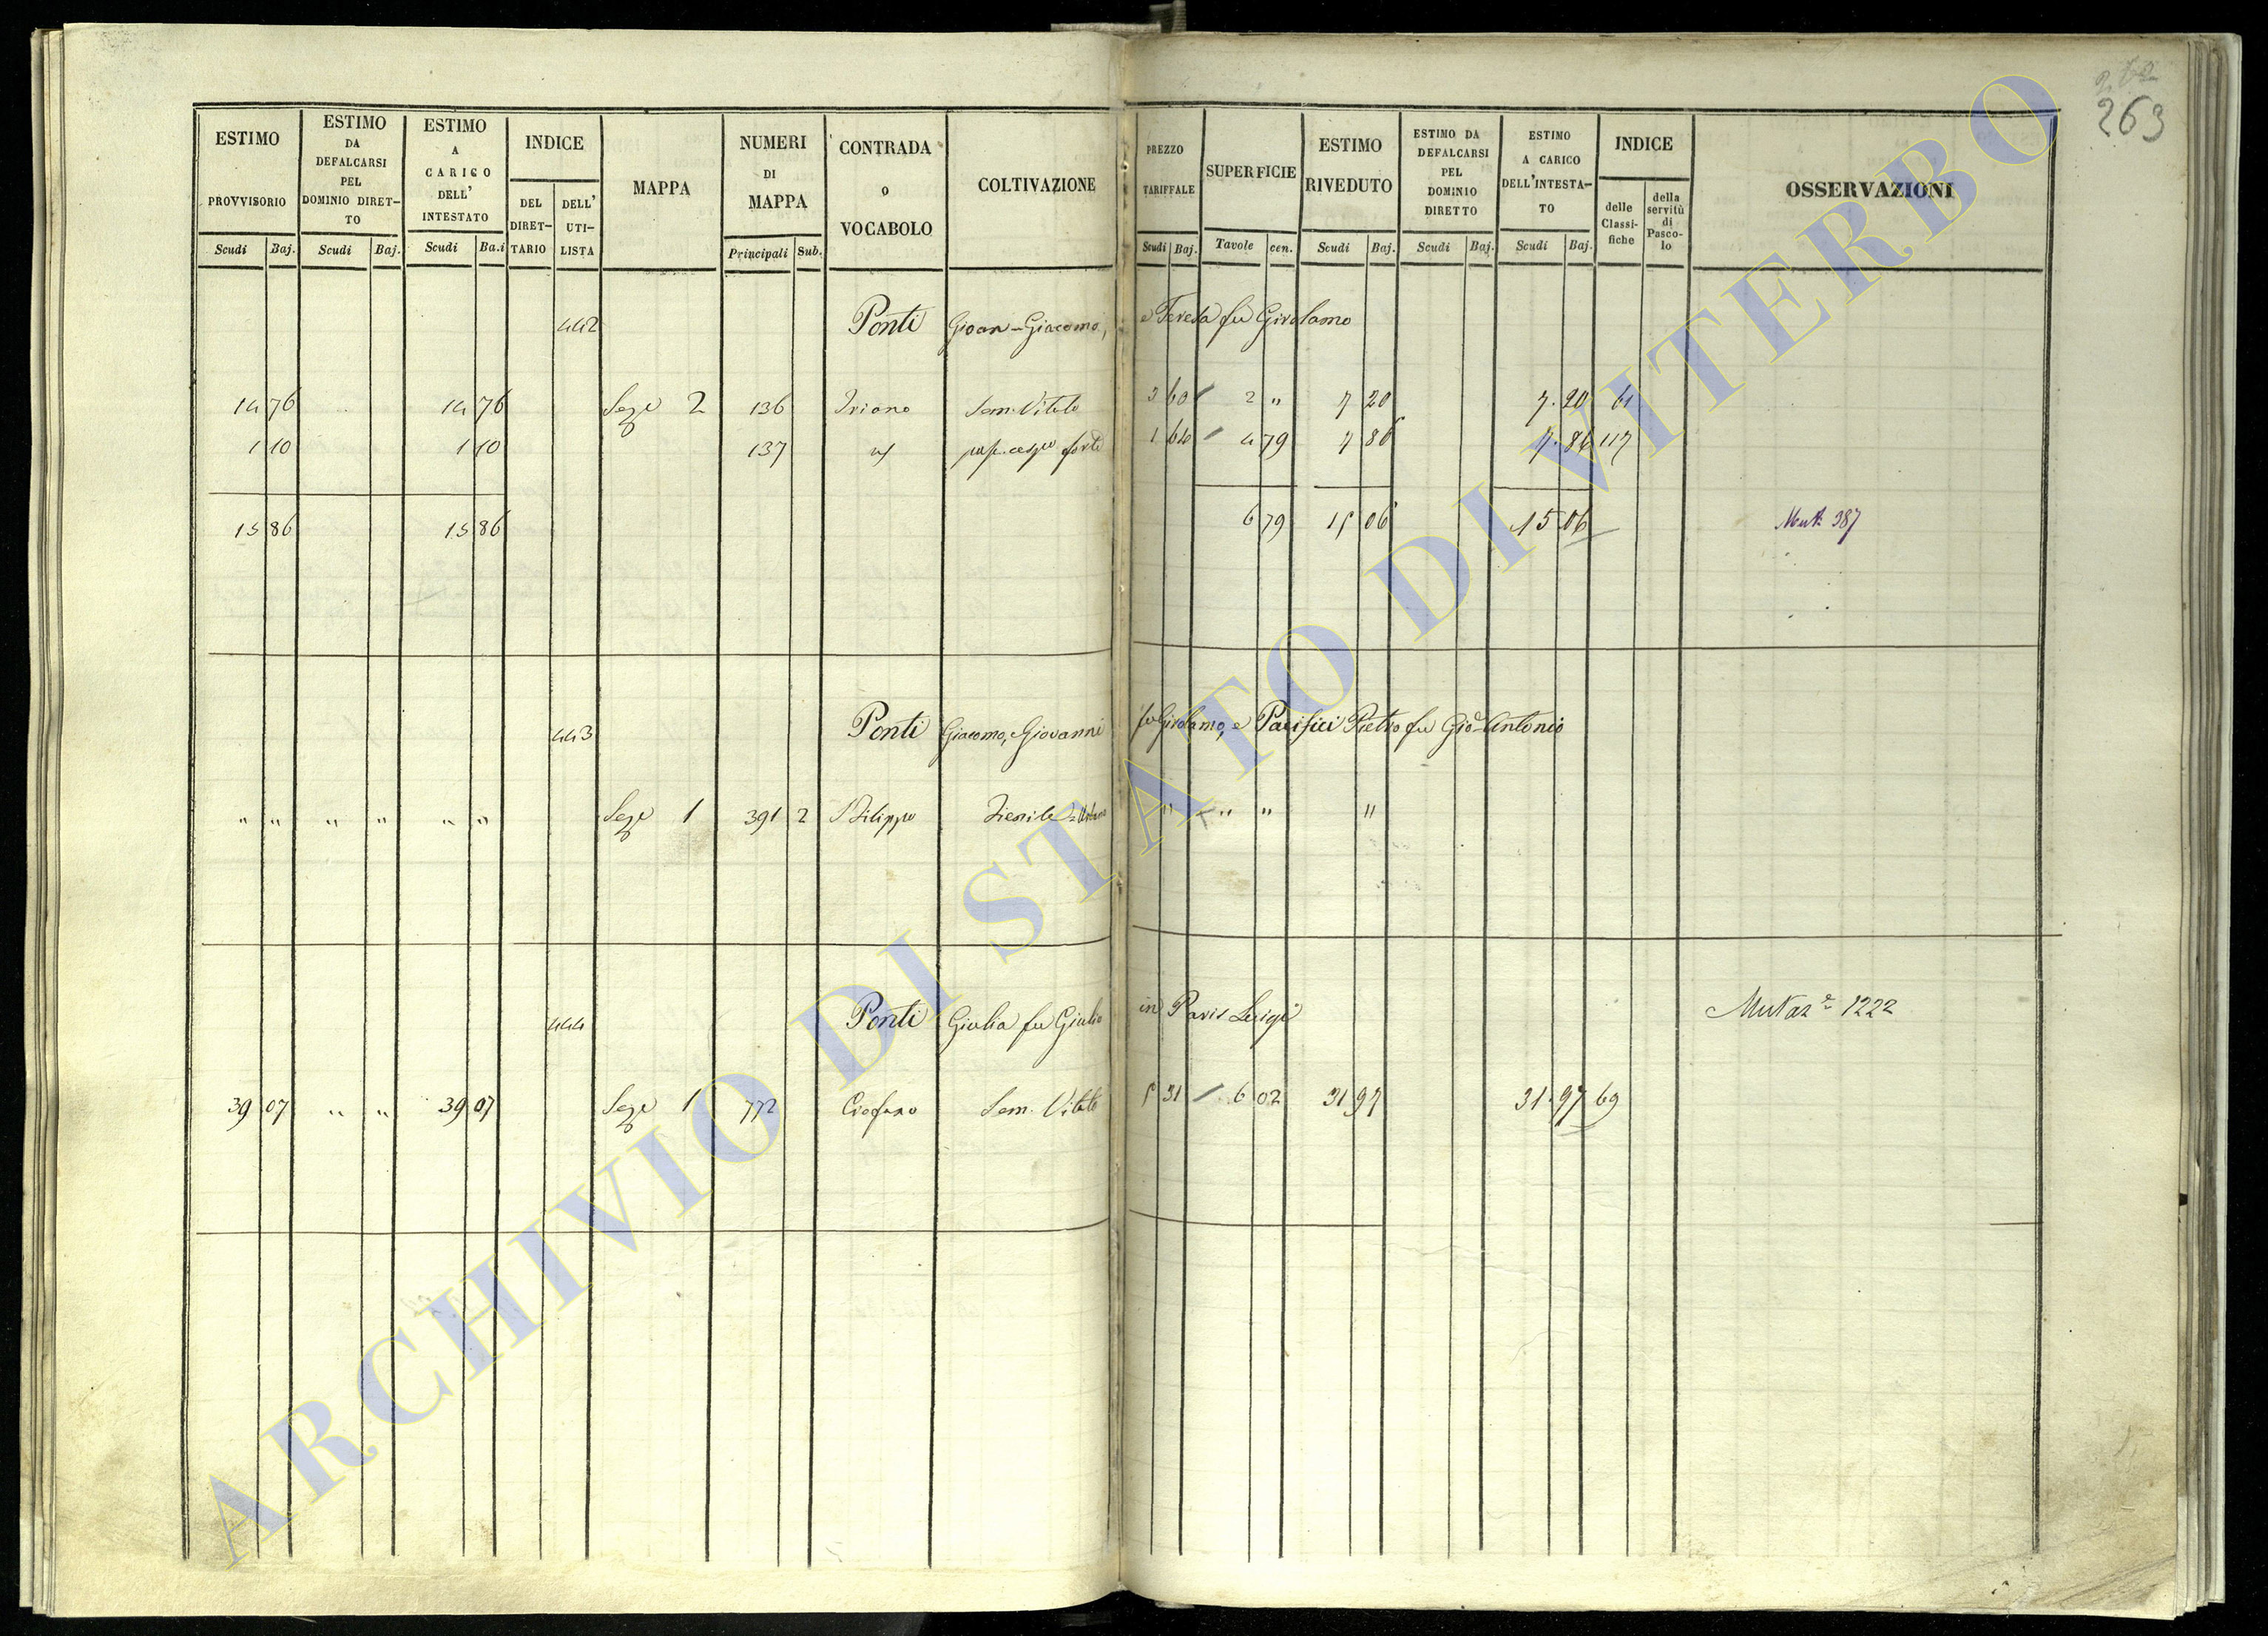 262
263
ESTIMO PROVVISORIO
ESTIMO DA DEFALCARSI PEL DOMINIO DIRET-TO
ESTIMO A CARICO DELL' INTESTATO
INDICE
DEL DIRET-TARIO
DELL' UTI-LISTA
MAPPA
NUMERI DI MAPPA
CONTRADA o VOCABOLO
COLTIVAZIONE
PREZZO TARIFFALE
SUPERFICIE
ESTIMO RIVEDUTO
ESTIMO DA DEFALCARSI PEL DOMINIO DIRETTO
ESTIMO A CARICO DELL'INTESTA-TO
INDICE
delle Classi-fiche
della servitù di Pasco-lo
OSSERVAZIONI
Scudi Baj. Scudi Baj. Scudi Ba.i Principali Sub. Scudi Baj. Tavole cen. Scudi Baj. Scudi Baj. Scudi Baj.
442 Ponti Gioan-Giacomo, e Teresa fu Girolamo
14 76 14 76 2 136 Sem. Vitato 3 60 2 " 7 20 7. 20 61
1 10 1 10 137 forte 1 64 4 79 7 86 7. 86 117
15 86 15 86 6 79 15 06 15 06 Mut. 387
443 Ponti Giacomo, Giovanni fu Girolamo, e Pacifici Pietro fu Gio. Antonio
" " " " " " 1 391 2 S Filippo " " " "
444 Ponti Giulia fu Giulio in Paris Luigi Mutaz.e 1222
39 07 " " 39 07 1 772 Sem. Vitato 5 31 6 02 31 97 31. 97 69
ARCHIVIO DI STATO DI VITERBO